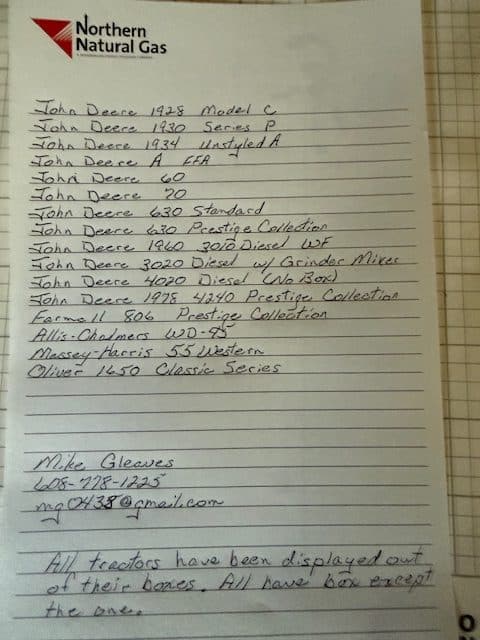 Northern
Natural Gas
John Deere 1928 Model C
John Deere 1930 Series P
John Deere 1934 Unstyled A
John Deere A FFA
John Deere 60
John Deere 70
John Deere 630 Standard
John Deere 630 Prestige Collection
John Deere 1960 3010 Diesel WF
John Deere 3020 Diesel w/ Grinder Mixer
John Deere 4020 Diesel (No Box)
John Deere 1978 4240 Prestige Collection
Farmall 806 Prestige Collection
Allis-Chalmers WD-45
Massey-Harris 55 Western
Oliver 1650 Classic Series
Mike Gleaves
608-778-1225
mg0438@gmail.com
All tractors have been displayed out
of their boxes. All have box except
the one.